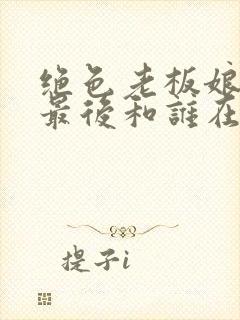 绝色老板娘
最後和誰在
提子i